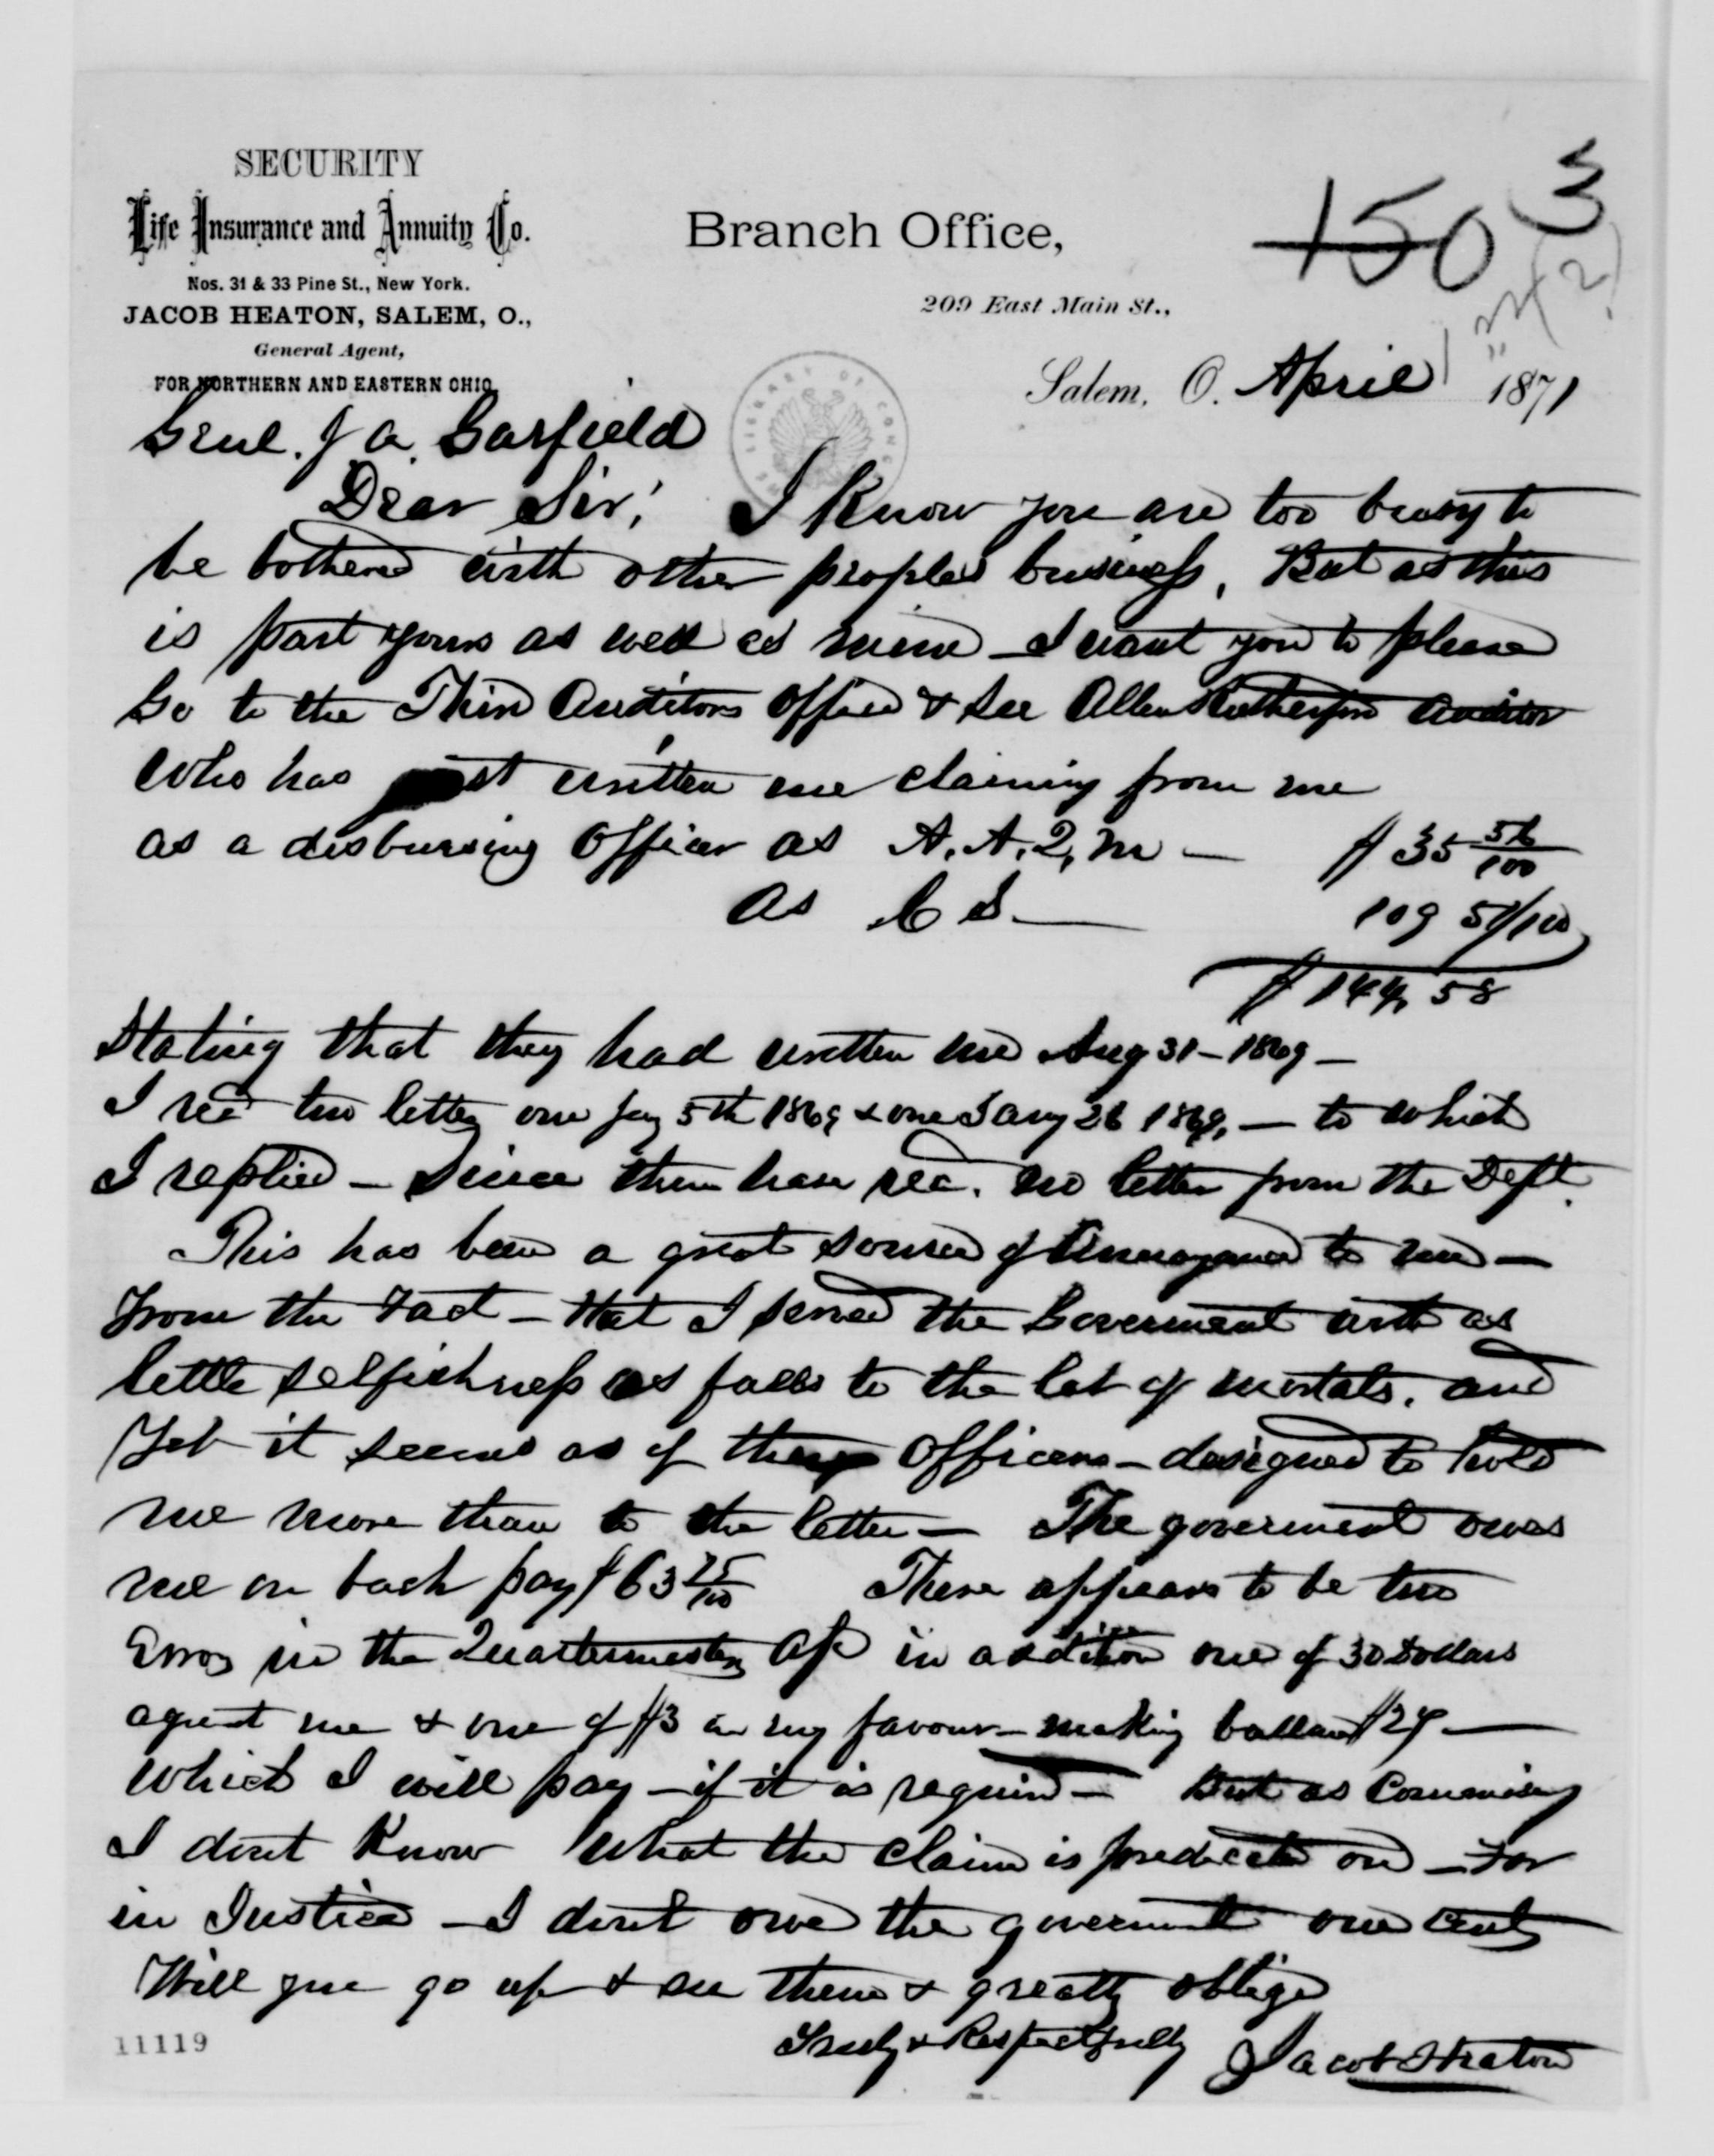 SECURITY
Life Insurance and Annuity Co.
Nos. 31 & 33 Pine St., New York.
JACOB HEATON, SALEM, O.,
General Agent,
FOR NORTHERN AND EASTERN OHIO.
Branch Office,
209 East Main St.,
150 3
Salem, O. April 1871
Genl. J A. Garfield
Dear Sir, I Know you are too buisy to
be bothered with other peoples business, But as this
is part yours as well as mine – I want you to please
Go to the Third Auditors Office & see Allen Rutherford Auditor
Who has just written me claiming from me
as a disbursing Officer as A. A. Q. M — $ 35 56/100
As C S — 109 51/100
$ 144, 58
Stating that they had written me Aug 31 – 1869 –
I recd two letters one Jany 5th 1869 & one Jany 26 1869, — to which
I replied – Since then have rec. no letter from the Dept.
This has been a great source of Annoyance to me —
From the Fact – that I served the Goverment with as
little selfishness as falls to the lot of mortals, and
Yet it seems as if these Officers – designed to hold
me more than to the letter — The goverment owes
me on back pay $63 25/100 There appears to be two
Errors in the Quartermasters in addition one of 30 Dollars
against me & one of $3 in my favour – making ballance $27 —
Which I will pay – if it is required – But as Commisary
I dont Know What the claim is predicated on – For
in Justice – I dont owe the goverment one cent
Will you go up & see them & greatly oblige
Truly & Respectfully Jacob Heaton
11119